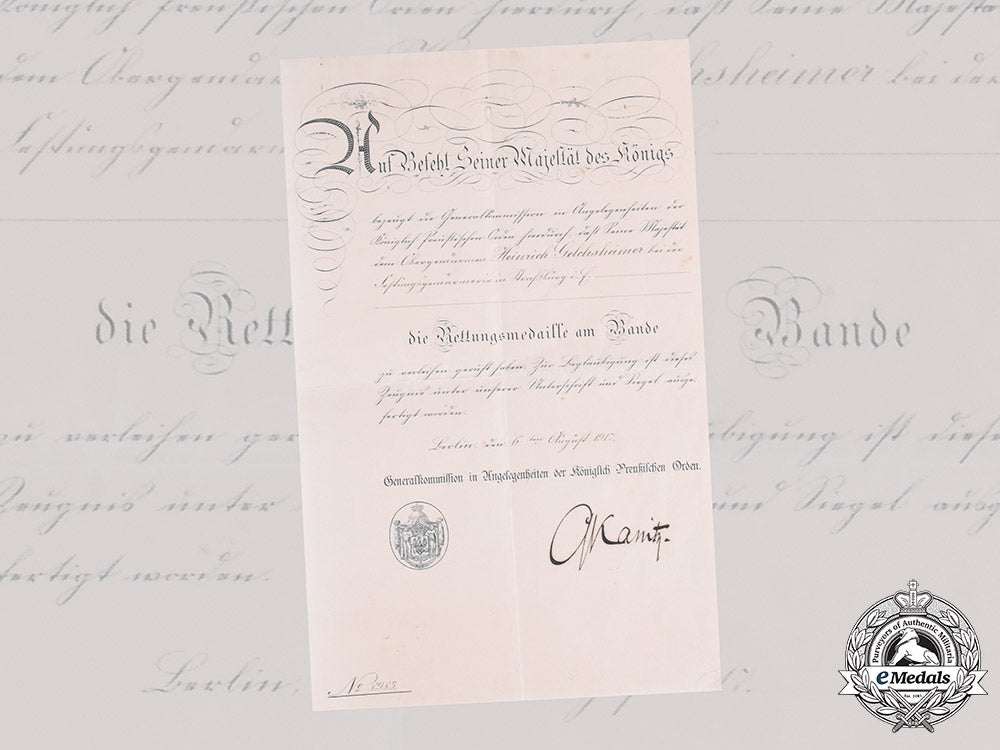 Auf Befehl Seiner Majestät des Königs
bezeugt die Generalkommission in Angelegenheiten der
Königlich Preußischen Orden hierdurch, daß Seine Majestät
dem Obergendarmen Heinrich Gelchsheimer bei der
Festungsgendarmerie in Straßburg i. E.
die Rettungsmedaille am Bande
zu verleihen geruht haben. Zur Beglaubigung ist dieses
Zeugnis unter unserer Unterschrift und Siegel ausge
fertigt worden.
Berlin, den 6ten August
Generalkommission in Angelegenheiten der Königlich Preußischen Orden.
Kanitz.
No
Purveyors of Authentic Militaria
eMedals